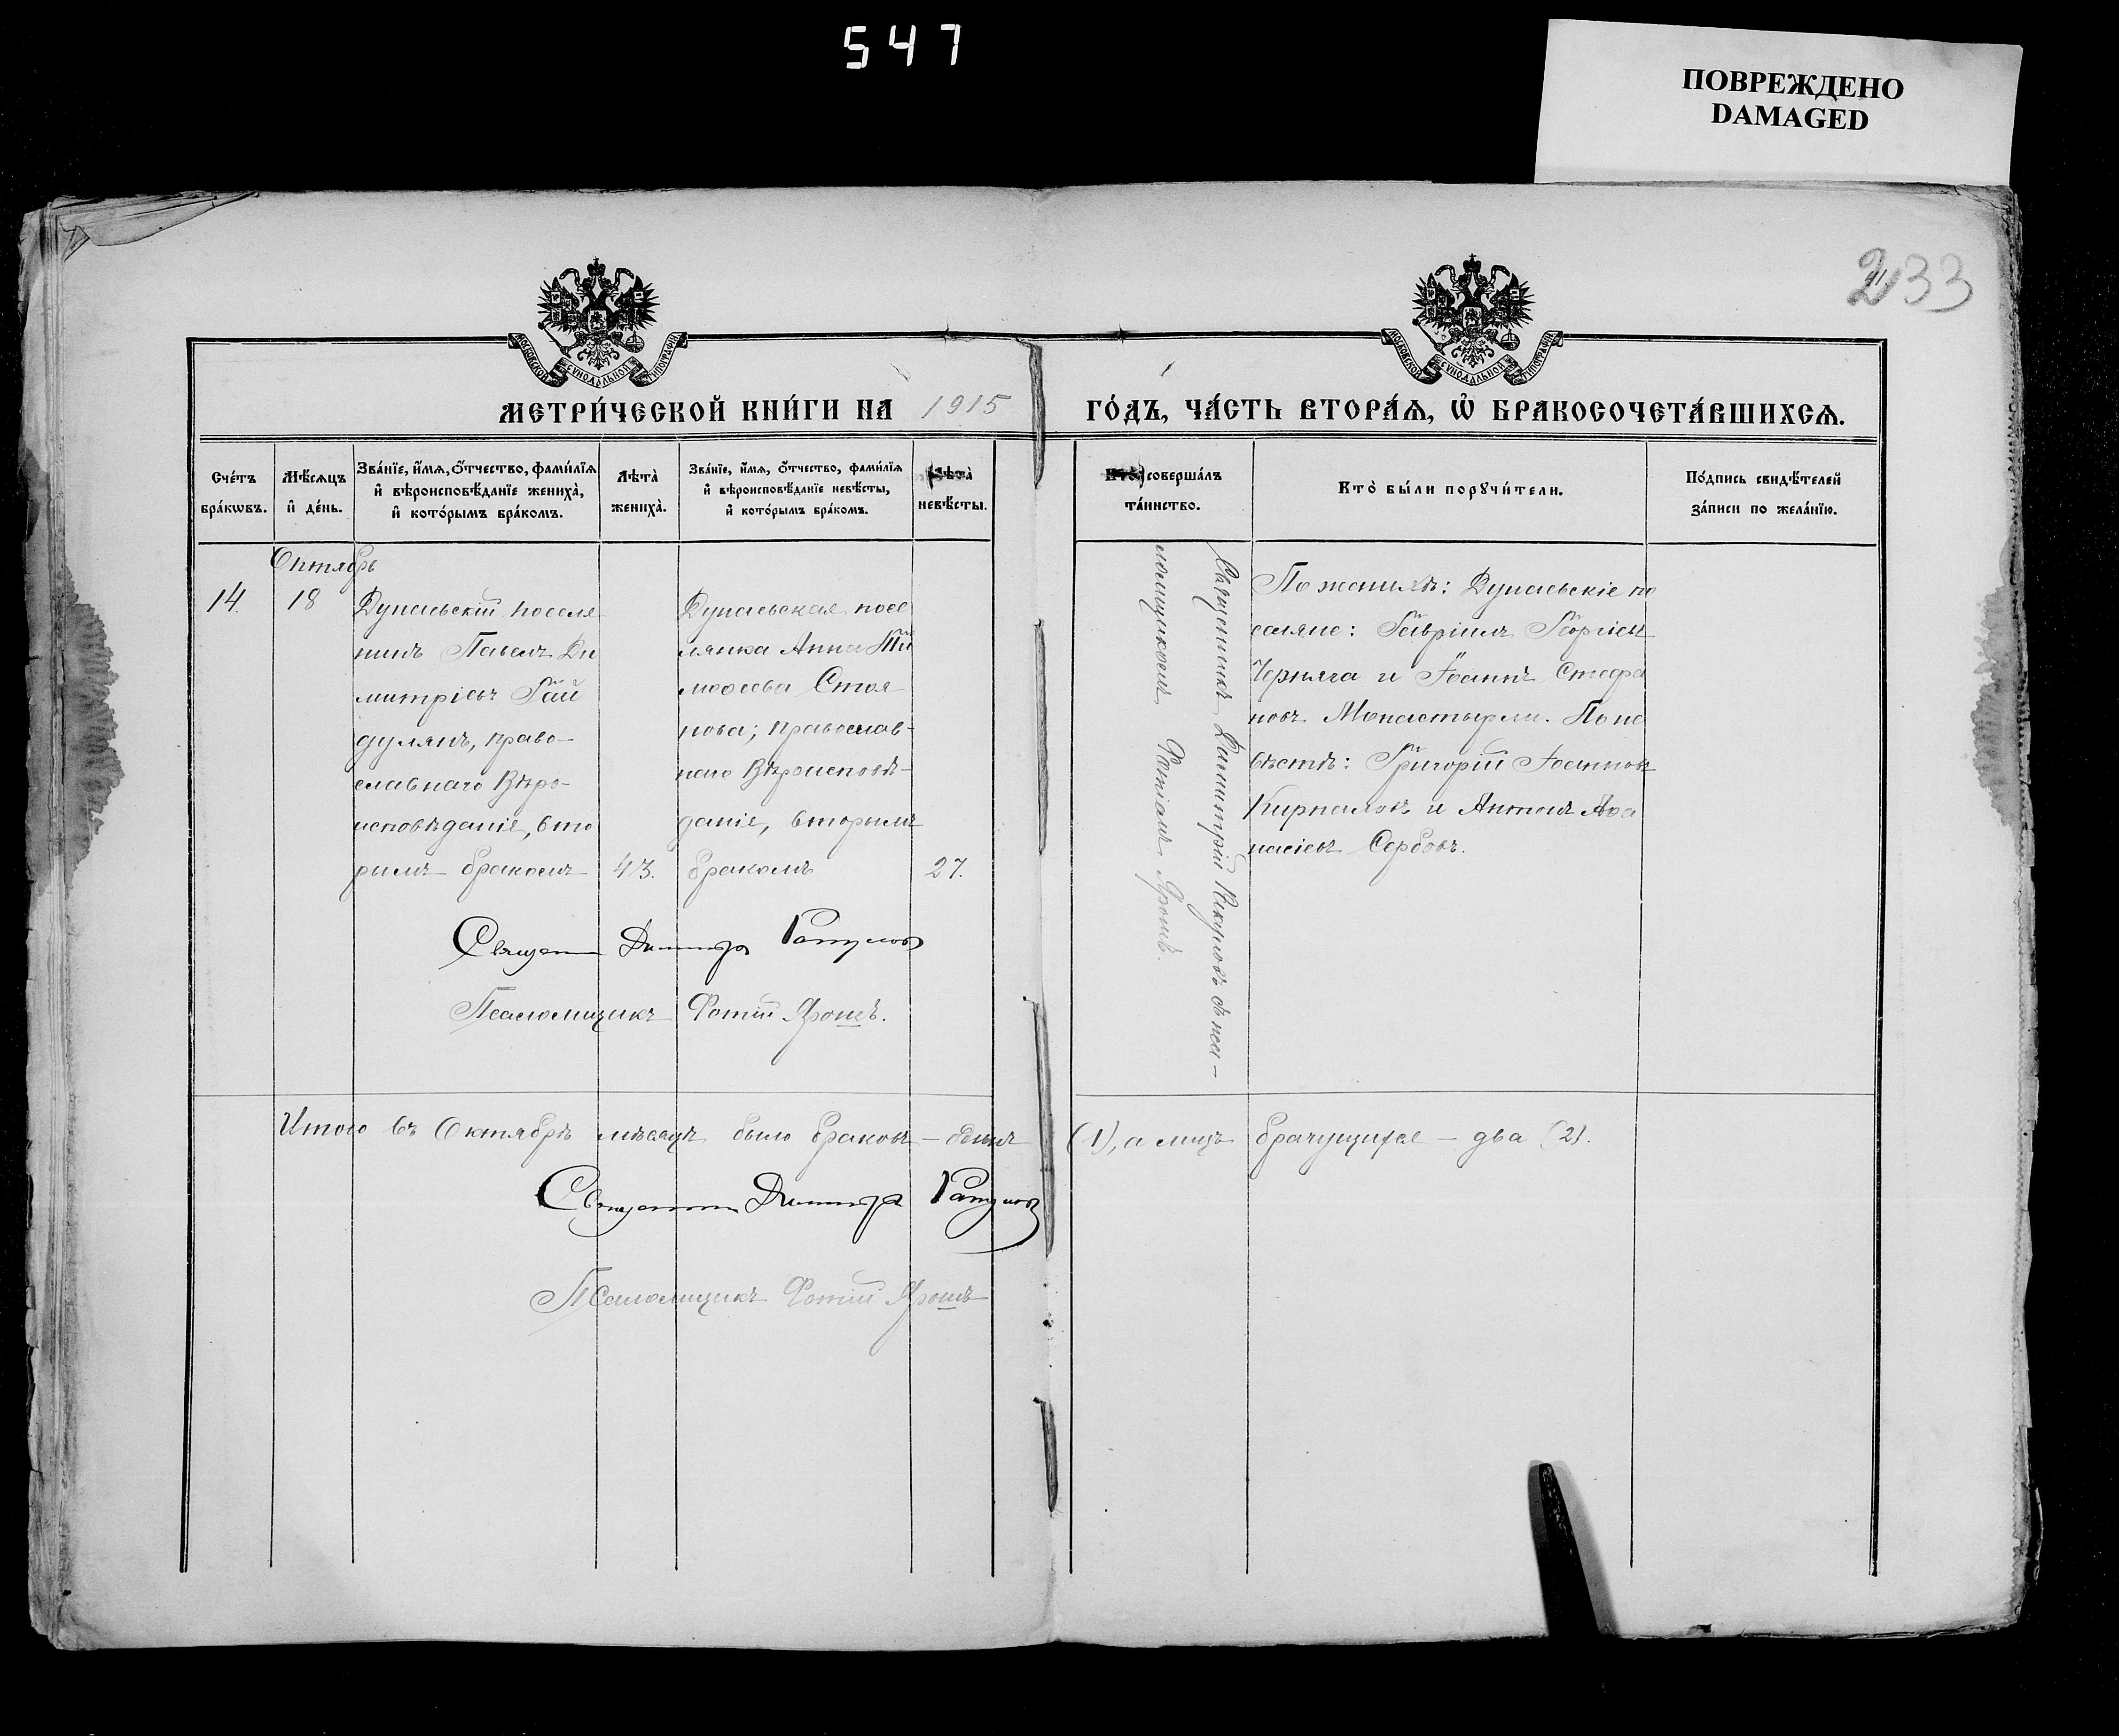 547
ПОВРЕЖДЕНО
DAMAGED
41.
233
МОСКОВСКОЙ СѴНОДАЛЬНОЙ ТИПОГРАФІИ
МОСКОВСКОЙ СѴНОДАЛЬНОЙ ТИПОГРАФІИ
МЕТРИ́ЧЕСКОЙ КНИ́ГИ НА 1915 ГО́ДЪ, ЧА́СТЬ ВТОРА́Ѧ, Ѡ҆ БРАКОСОЧЕТА́ВШИХСѦ.
Сче́тъ
бра́кѡвъ.
Мѣ́сѧцъ
и҆ де́нь.
Зва́нїе, и҆́мѧ, ѻ҆́тчество, фами́лїѧ
и҆ вѣроисповѣ́данїе жениха̀,
и҆ кото́рымъ бра́комъ.
Лѣта̀
жениха̀.
Зва́нїе, и҆́мѧ, ѻ҆́тчество, фами́лїѧ
и҆ вѣроисповѣ́данїе невѣ́сты,
и҆ кото́рымъ бра́комъ.
Лѣта̀
невѣ́сты.
Кто̀ соверша́лъ
та́инство.
Кто̀ бы́ли порꙋчи́тели.
По́дпись свидѣ́телей
за́писи по жела́нїю.
Октябрь
14. 18
Дунаевскій поселя
нинъ Павелъ Ди
митріевъ Гай
дулянъ, право-
славнаго Вѣро-
исповѣданіе, вто
рымъ бракомъ
43.
Дунаевская посе
лянка Анна Ти
моѳеева Стоя
нова; православ-
наго Вѣроисповѣ-
даніе, вторымъ
бракомъ
27.
Священникъ Димитрій съ пса-
ломщикомъ Фотіемъ Ярошъ.
По женихѣ: Дунаевскіе по
селяне: Гавріилъ Георгіевъ
Черняга и Іоаннъ Стефа
новъ Монастырли. По не
вѣстѣ: Григорій Іоанновъ
и Антонъ Аѳа
насіевъ Сербовъ.
Священникъ Димитрій
Псаломщикъ Фотій Ярошъ.
Итого въ Октябрѣ мѣсяцѣ было браковъ - одинъ (1), а лицъ брачущихся - два (2).
Священникъ Димитрій
Псаломщикъ Фотій Ярошъ